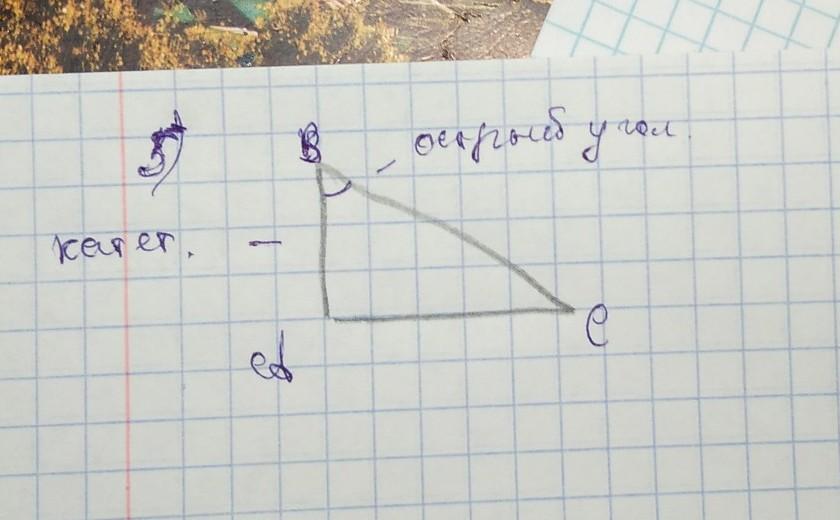 5)
B
острый угол.
катет. –
A
C